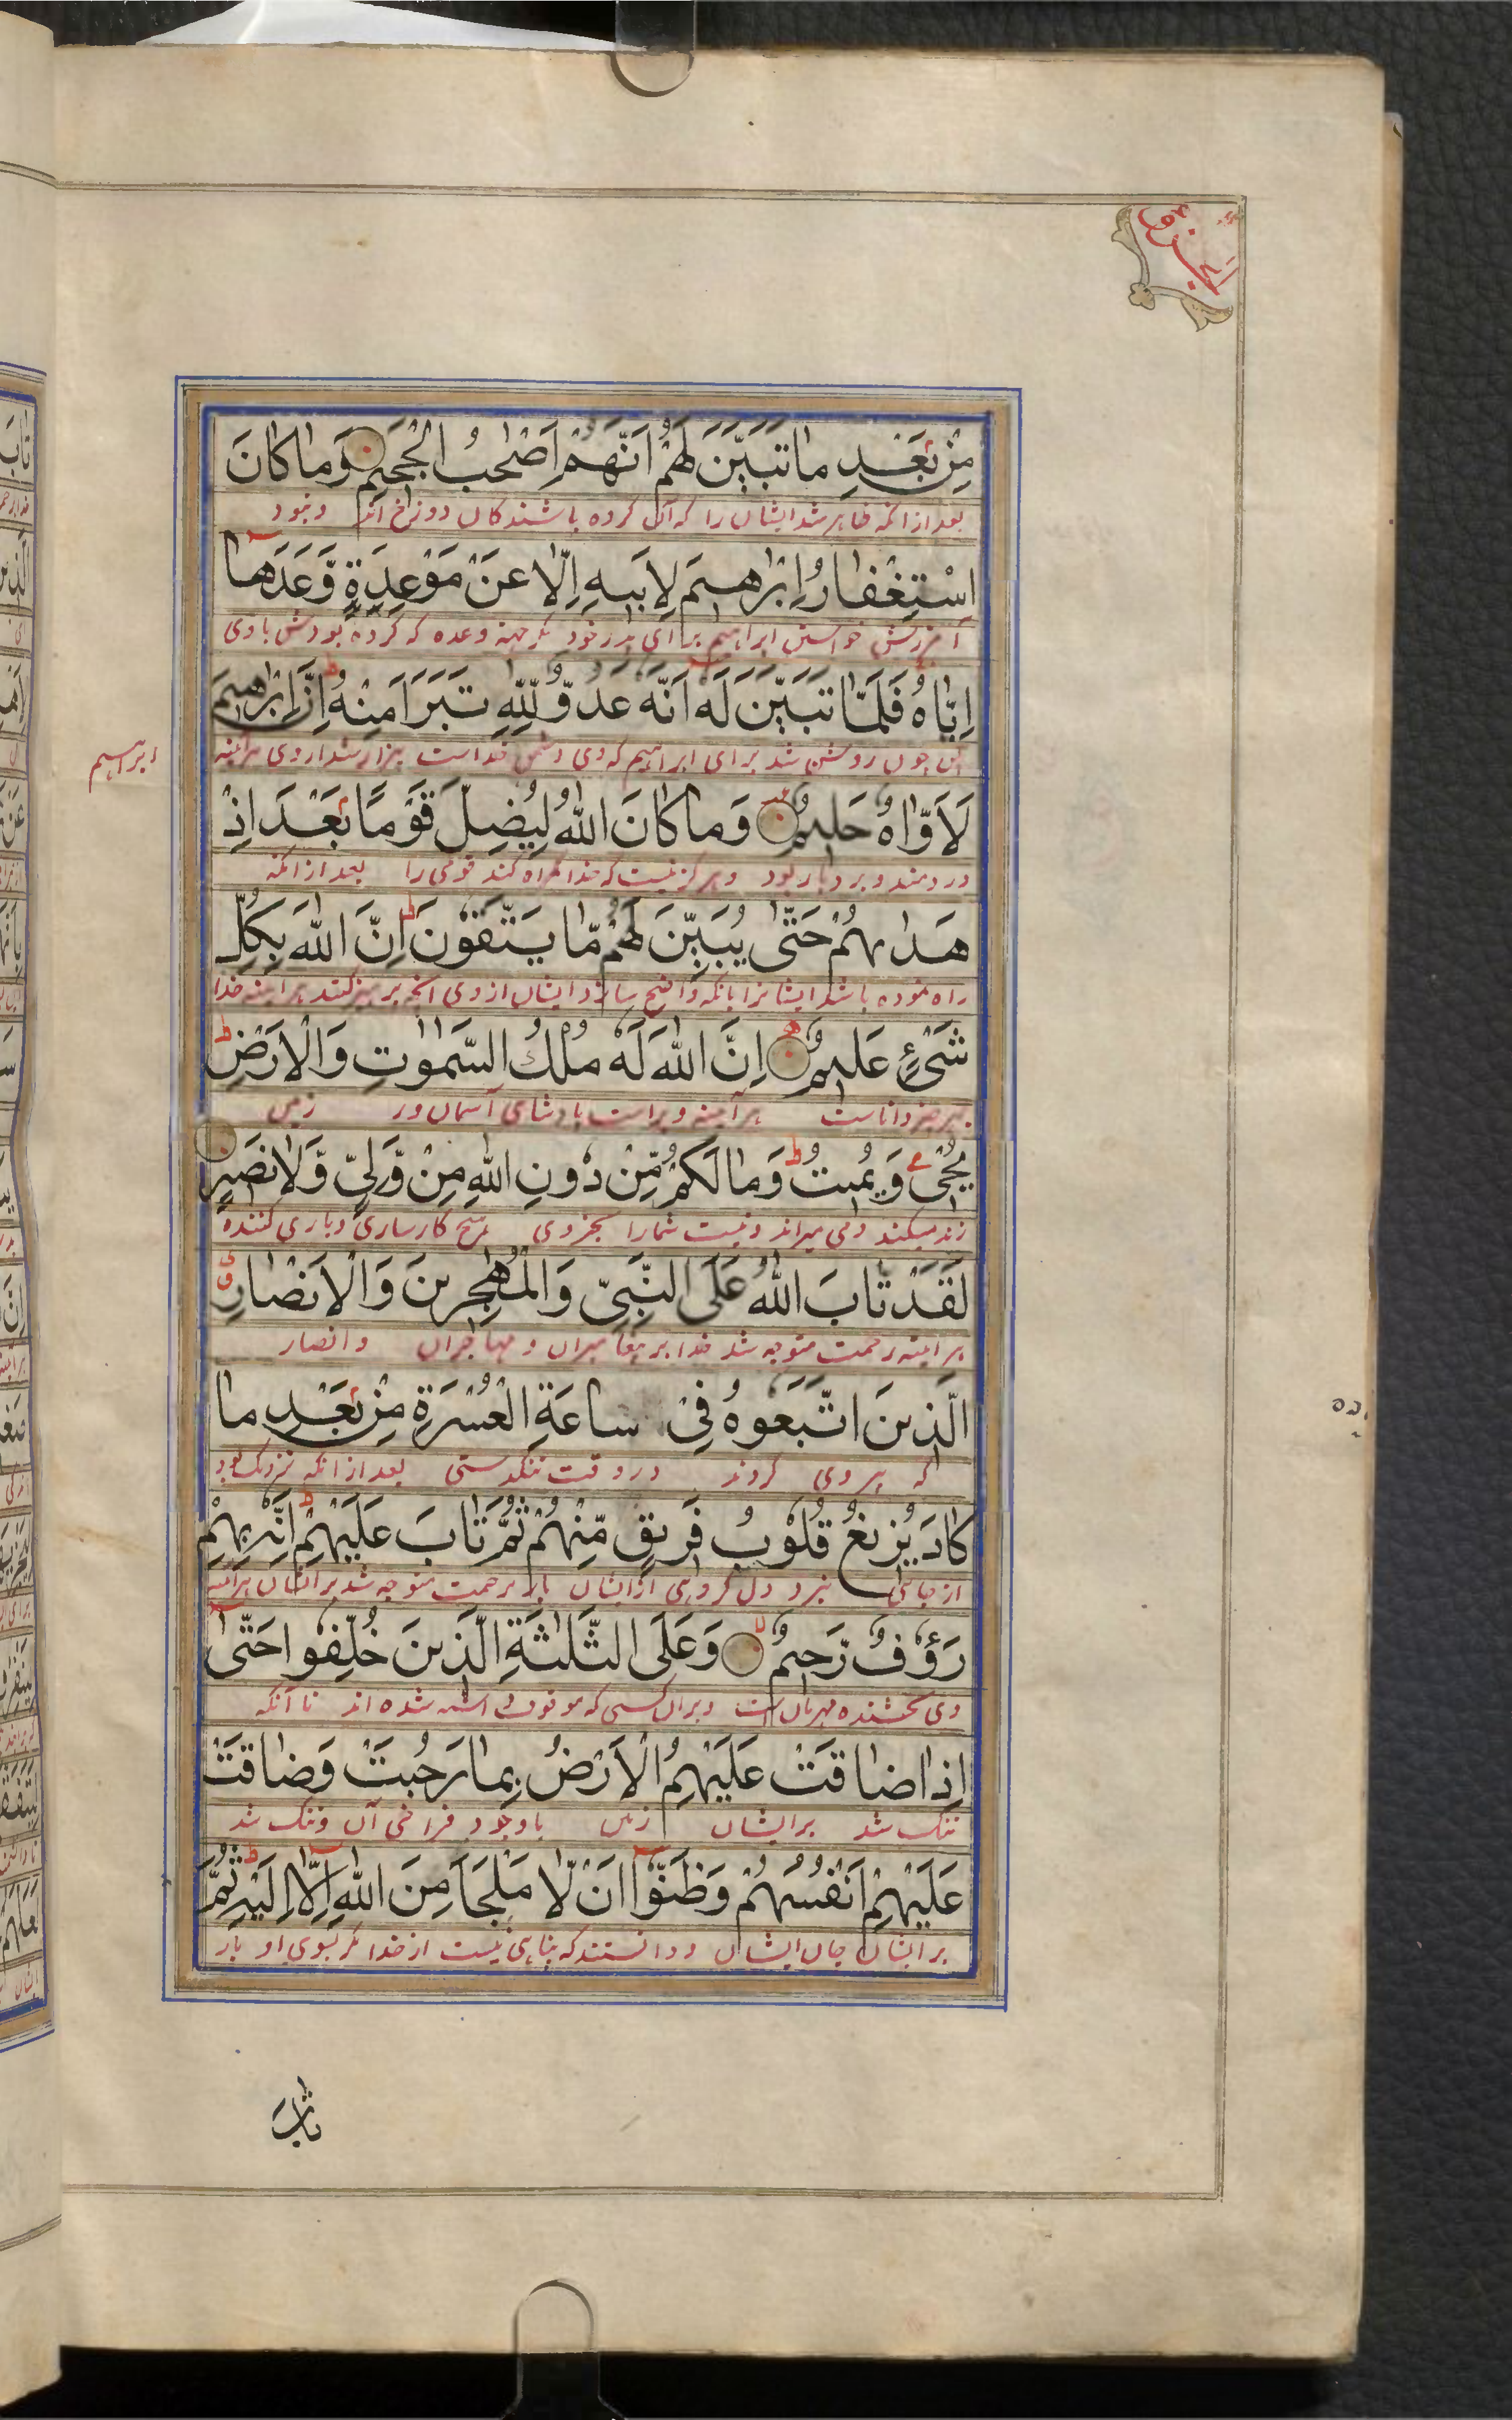 الجزو
مِنْ بَعْدِ مَا تَبَيَّنَ لَهُمْ اَنَّهُمْ اَصْحٰبُ الْجَحِيْمِ وَمَا كَانَ
بعد از انکه ظاهر شد ایشان را که آن کرده باشندکان دوزخ اند و نبود
اسْتِغْفَارُ اِبْرٰهِيْمَ لِاَبِيْهِ اِلَّا عَنْ مَوْعِدَةٍ وَّعَدَهَا
آمرزش خواستن ابراهیم برای پدر خود مکر جهته وعده که کرده بودش با وی
اِيَّاهُ فَلَمَّا تَبَيَّنَ لَهٗ اَنَّهٗ عَدُوٌّ لِّلّٰهِ تَبَرَّاَ مِنْهُ اِنَّ اِبْرٰهِيْمَ
پس چون روشن شد برای ابراهیم که وی دشمن خداست بیزار شد از وی هرآینه
ابراهیم
لَاَوَّاهٌ حَلِيْمٌ وَمَا كَانَ اللّٰهُ لِيُضِلَّ قَوْمًا بَعْدَ اِذْ
دردمند و بردبار بود و هرکز نیست که خدا کمراه کند قومی را بعد از انکه
هَدٰىهُمْ حَتّٰى يُبَيِّنَ لَهُمْ مَّا يَتَّقُوْنَ اِنَّ اللّٰهَ بِكُلِّ
راه نموده باشد ایشانرا تا انکه واضح سازد ایشان از وی انچه پرهیز کنند هر اینه خدا
شَيْءٍ عَلِيْمٌ اِنَّ اللّٰهَ لَهٗ مُلْكُ السَّمٰوٰتِ وَالْاَرْضِ
بهر چیز داناست هر آینه ویراست بادشاهی آسمان و زمین
يُحْيٖ وَيُمِيْتُ وَمَا لَكُمْ مِّنْ دُوْنِ اللّٰهِ مِنْ وَّلِيٍّ وَّلَا نَصِيْرٍ
زنده میکند و می میراند و نیست شمارا بجز وی هیچ کارسازی و یاری کننده
لَقَدْ تَابَ اللّٰهُ عَلَى النَّبِيِّ وَالْمُهٰجِرِيْنَ وَالْاَنْصَارِ
هر اینه برحمت متوجه شد خدا بر پیغامبران و مهاجران و انصار
الَّذِيْنَ اتَّبَعُوْهُ فِيْ سَاعَةِ الْعُسْرَةِ مِنْ بَعْدِ مَا
که پیروی کردند در وقت تنکدستی بعد از انکه نزدیک بود
كَادَ يَزِيْغُ قُلُوْبُ فَرِيْقٍ مِّنْهُمْ ثُمَّ تَابَ عَلَيْهِمْ اِنَّهٗ بِهِمْ
از جای برد دل کروهی از ایشان باز برحمت متوجه شد بر ایشان هرآینه
رَءُوْفٌ رَّحِيْمٌ وَعَلَى الثَّلٰثَةِ الَّذِيْنَ خُلِّفُوْا حَتّٰى
وی بخشنده مهربان است و بران کسی که موقوف داشته شده اند تا آنکه
اِذَا ضَاقَتْ عَلَيْهِمُ الْاَرْضُ بِمَا رَحُبَتْ وَضَاقَتْ
تنک شد بر ایشان زمین با وجود فراخی آن و تنک شد
عَلَيْهِمْ اَنْفُسُهُمْ وَظَنُّوْا اَنْ لَّا مَلْجَاَ مِنَ اللّٰهِ اِلَّا اِلَيْهِ ثُمَّ
بر ایشان جان ایشان و دانستند که پناهی نیست از خدا مکر بسوی او باز
تَابَ